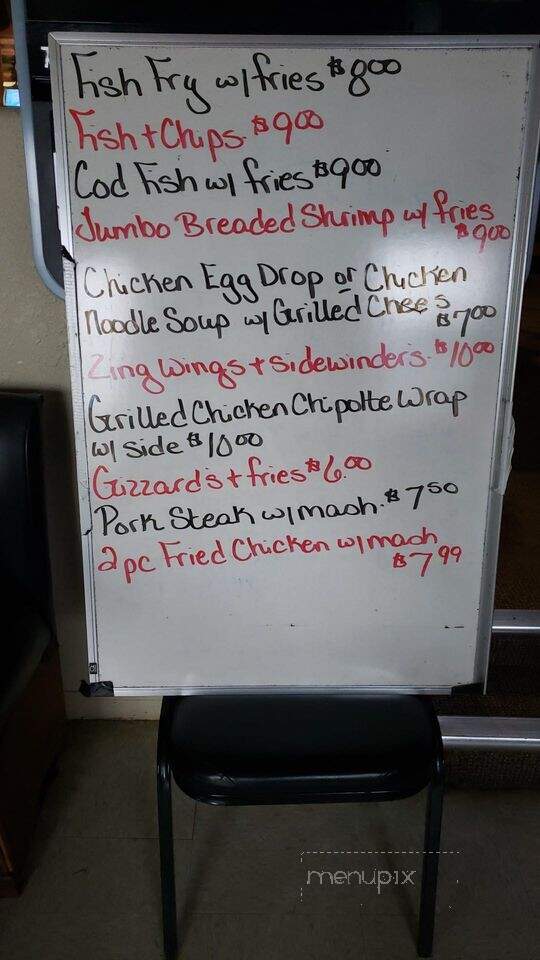 Fish Fry w/ fries $8.00
Fish + Chips. $9.00
Cod Fish w/ fries $9.00
Jumbo Breaded Shrimp w/ fries
$9.00
Chicken Egg Drop or Chicken
Noodle Soup w/ Grilled Chees
$7.00
Zing Wings + Sidewinders. $10.00
Grilled Chicken Chipolte Wrap
w/ side $10.00
Gizzard's + fries $6.00
Pork Steak w/ mash. $7.50
2pc Fried Chicken w/ mash
$7.99
menupix